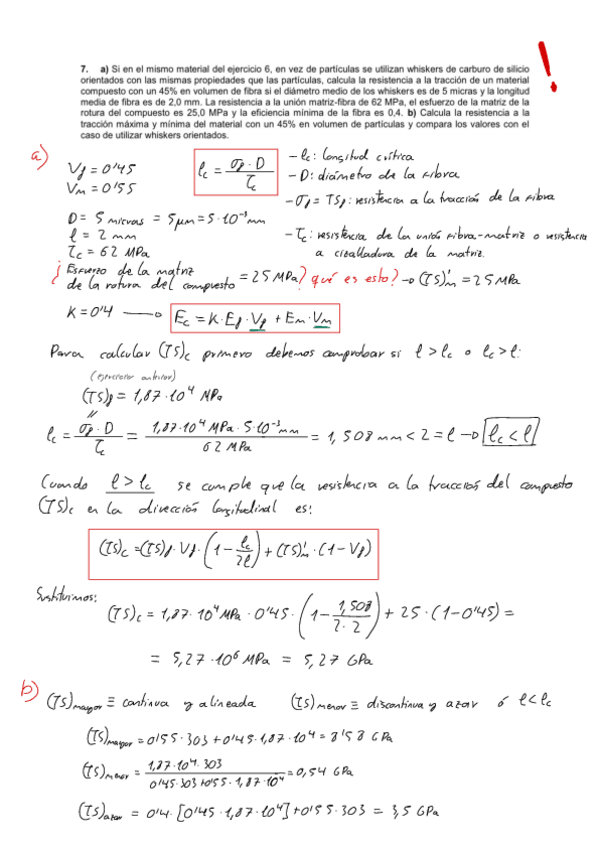 7. a) Si en el mismo material del ejercicio 6, en vez de partículas se utilizan whiskers de carburo de silicio
orientados con las mismas propiedades que las partículas, calcula la resistencia a la tracción de un material
compuesto con un 45% en volumen de fibra si el diámetro medio de los whiskers es de 5 micras y la longitud
media de fibra es de 2,0 mm. La resistencia a la unión matriz-fibra de 62 MPa, el esfuerzo de la matriz de la
rotura del compuesto es 25,0 MPa y la eficiencia mínima de la fibra es 0,4. b) Calcula la resistencia a la
tracción máxima y mínima del material con un 45% en volumen de partículas y compara los valores con el
caso de utilizar whiskers orientados.
!
a)
Vf = 0'45
Vm = 0'55
lc = σf · D / τc
- lc: longitud crítica
- D: diámetro de la fibra
- σf = TSf: resistencia a la tracción de la fibra
D = 5 micras = 5 μm = 5·10⁻³ mm
l = 2 mm
- τc: resistencia de la unión fibra-matriz o resistencia
a cizalladura de la matriz.
τc = 62 MPa
¿ Esfuerzo de la matriz
de la rotura del compuesto = 25 MPa? qué es esto? → (TS)'m = 25 MPa
K = 0'4 → Ec = K·Ef·Vf + Em·Vm
Para calcular (TS)c primero debemos comprobar si l > lc o lc > l:
(ejercicio anterior)
(TS)f = 1,87·10⁴ MPa
//
lc = σf · D / τc = 1,87·10⁴ MPa · 5·10⁻³ mm / 62 MPa = 1,508 mm < 2 = l → lc < l
Cuando l > lc se cumple que la resistencia a la traccion del compuesto
(TS)c en la dirección longitudinal es:
(TS)c = (TS)f · Vf · (1 - lc/2l) + (TS)'m · (1 - Vf)
Sustituimos:
(TS)c = 1,87·10⁴ MPa · 0'45 · (1 - 1,508/2·2) + 25 · (1 - 0'45) =
= 5,27·10⁶ MPa = 5,27 GPa
b)
(TS)mayor ≡ continua y alineada (TS)menor ≡ discontinua y azar ó l < lc
(TS)mayor = 0'55·303 + 0'45·1,87·10⁴ = 8'58 GPa
(TS)menor = 1,87·10⁴·303 / 0'45·303 + 0'55·1,87·10⁴ = 0,54 GPa
(TS)azar = 0'4·[0'45·1,87·10⁴] + 0'55·303 = 3,5 GPa